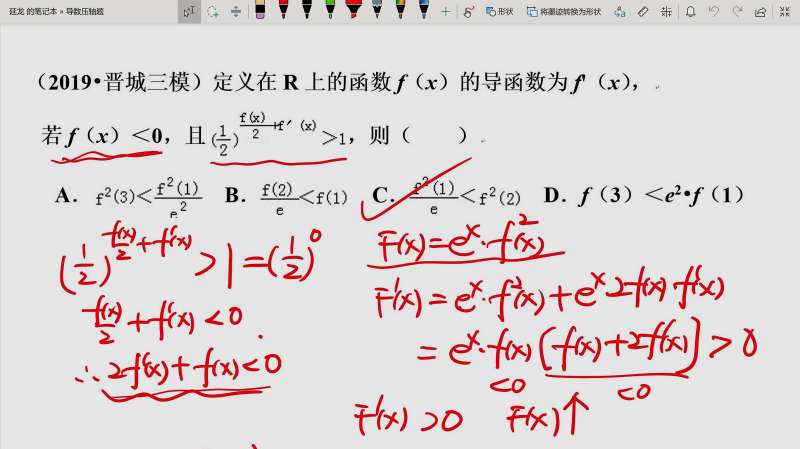 延龙 的笔记本 » 导数压轴题
形状 将墨迹转换为形状
（2019•晋城三模）定义在 R 上的函数 f（x）的导函数为 f'（x），
若 f（x）＜0，且 (1/2)^(f(x)/2+f'(x))>1，则（　　）
A．f²(3)<f²(1)/e² B．f(2)/e<f(1) C．f²(1)/e<f²(2) D．f（3）＜e²•f（1）
(1/2)^(f(x)/2+f'(x)) > 1 = (1/2)^0
f(x)/2+f'(x)<0
∴ 2f'(x)+f(x)<0
F(x)=e^x·f²(x)
F'(x)=e^x·f²(x)+e^x 2f(x)·f'(x)
=e^x·f(x)[f(x)+2f'(x)]>0
<0 <0
F'(x)>0 F(x)↑